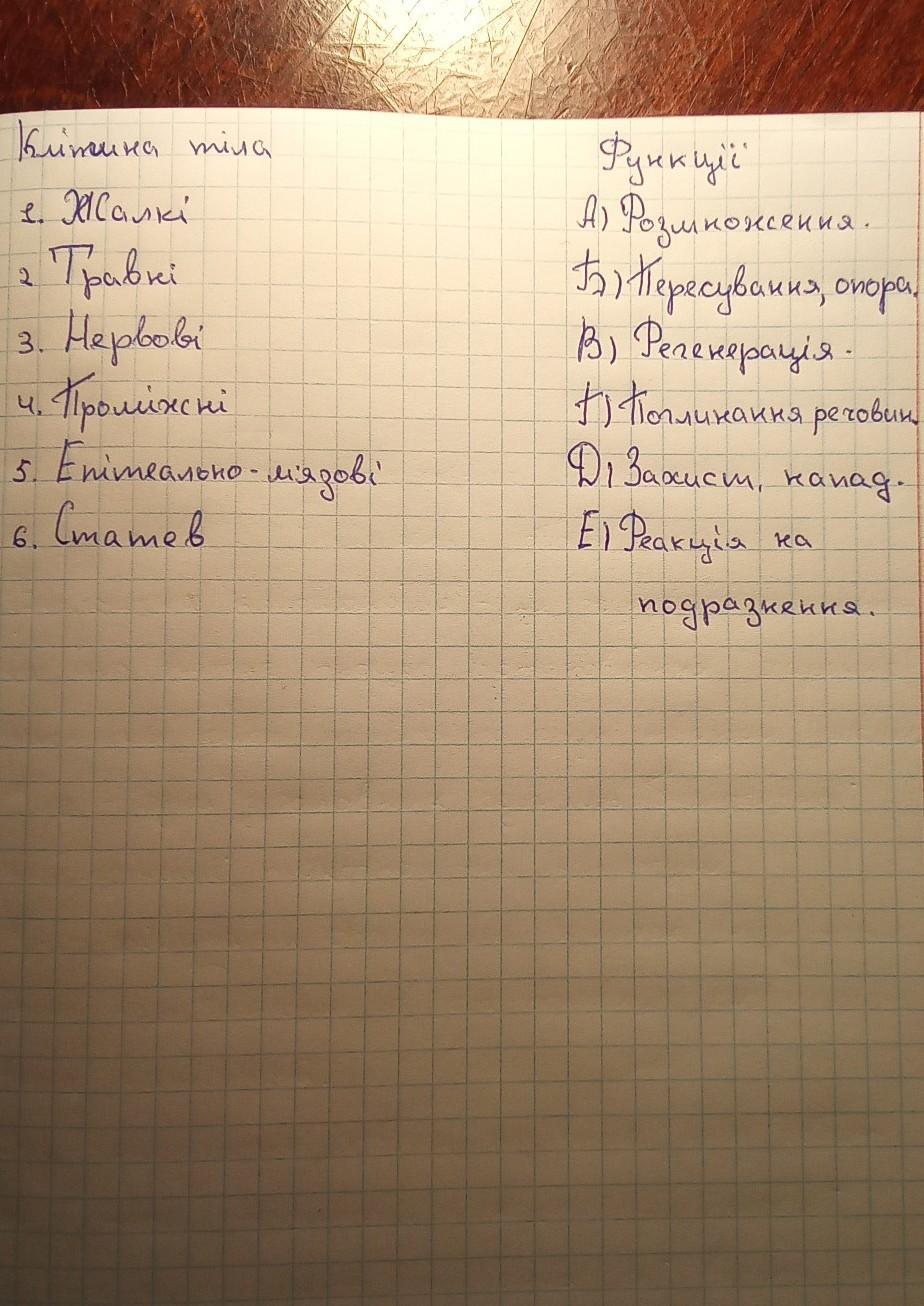 Клітина тіла
Функції
1. Жалкі
А) Розмноження.
2 Травні
Б) Пересування, опора.
3. Нервові
В) Регенерація.
4. Проміжні
Г) Поглинання речовин.
5. Епітеально-м'язові
D) Захист, напад.
6. Статев
Е) Реакція на
подразнення.